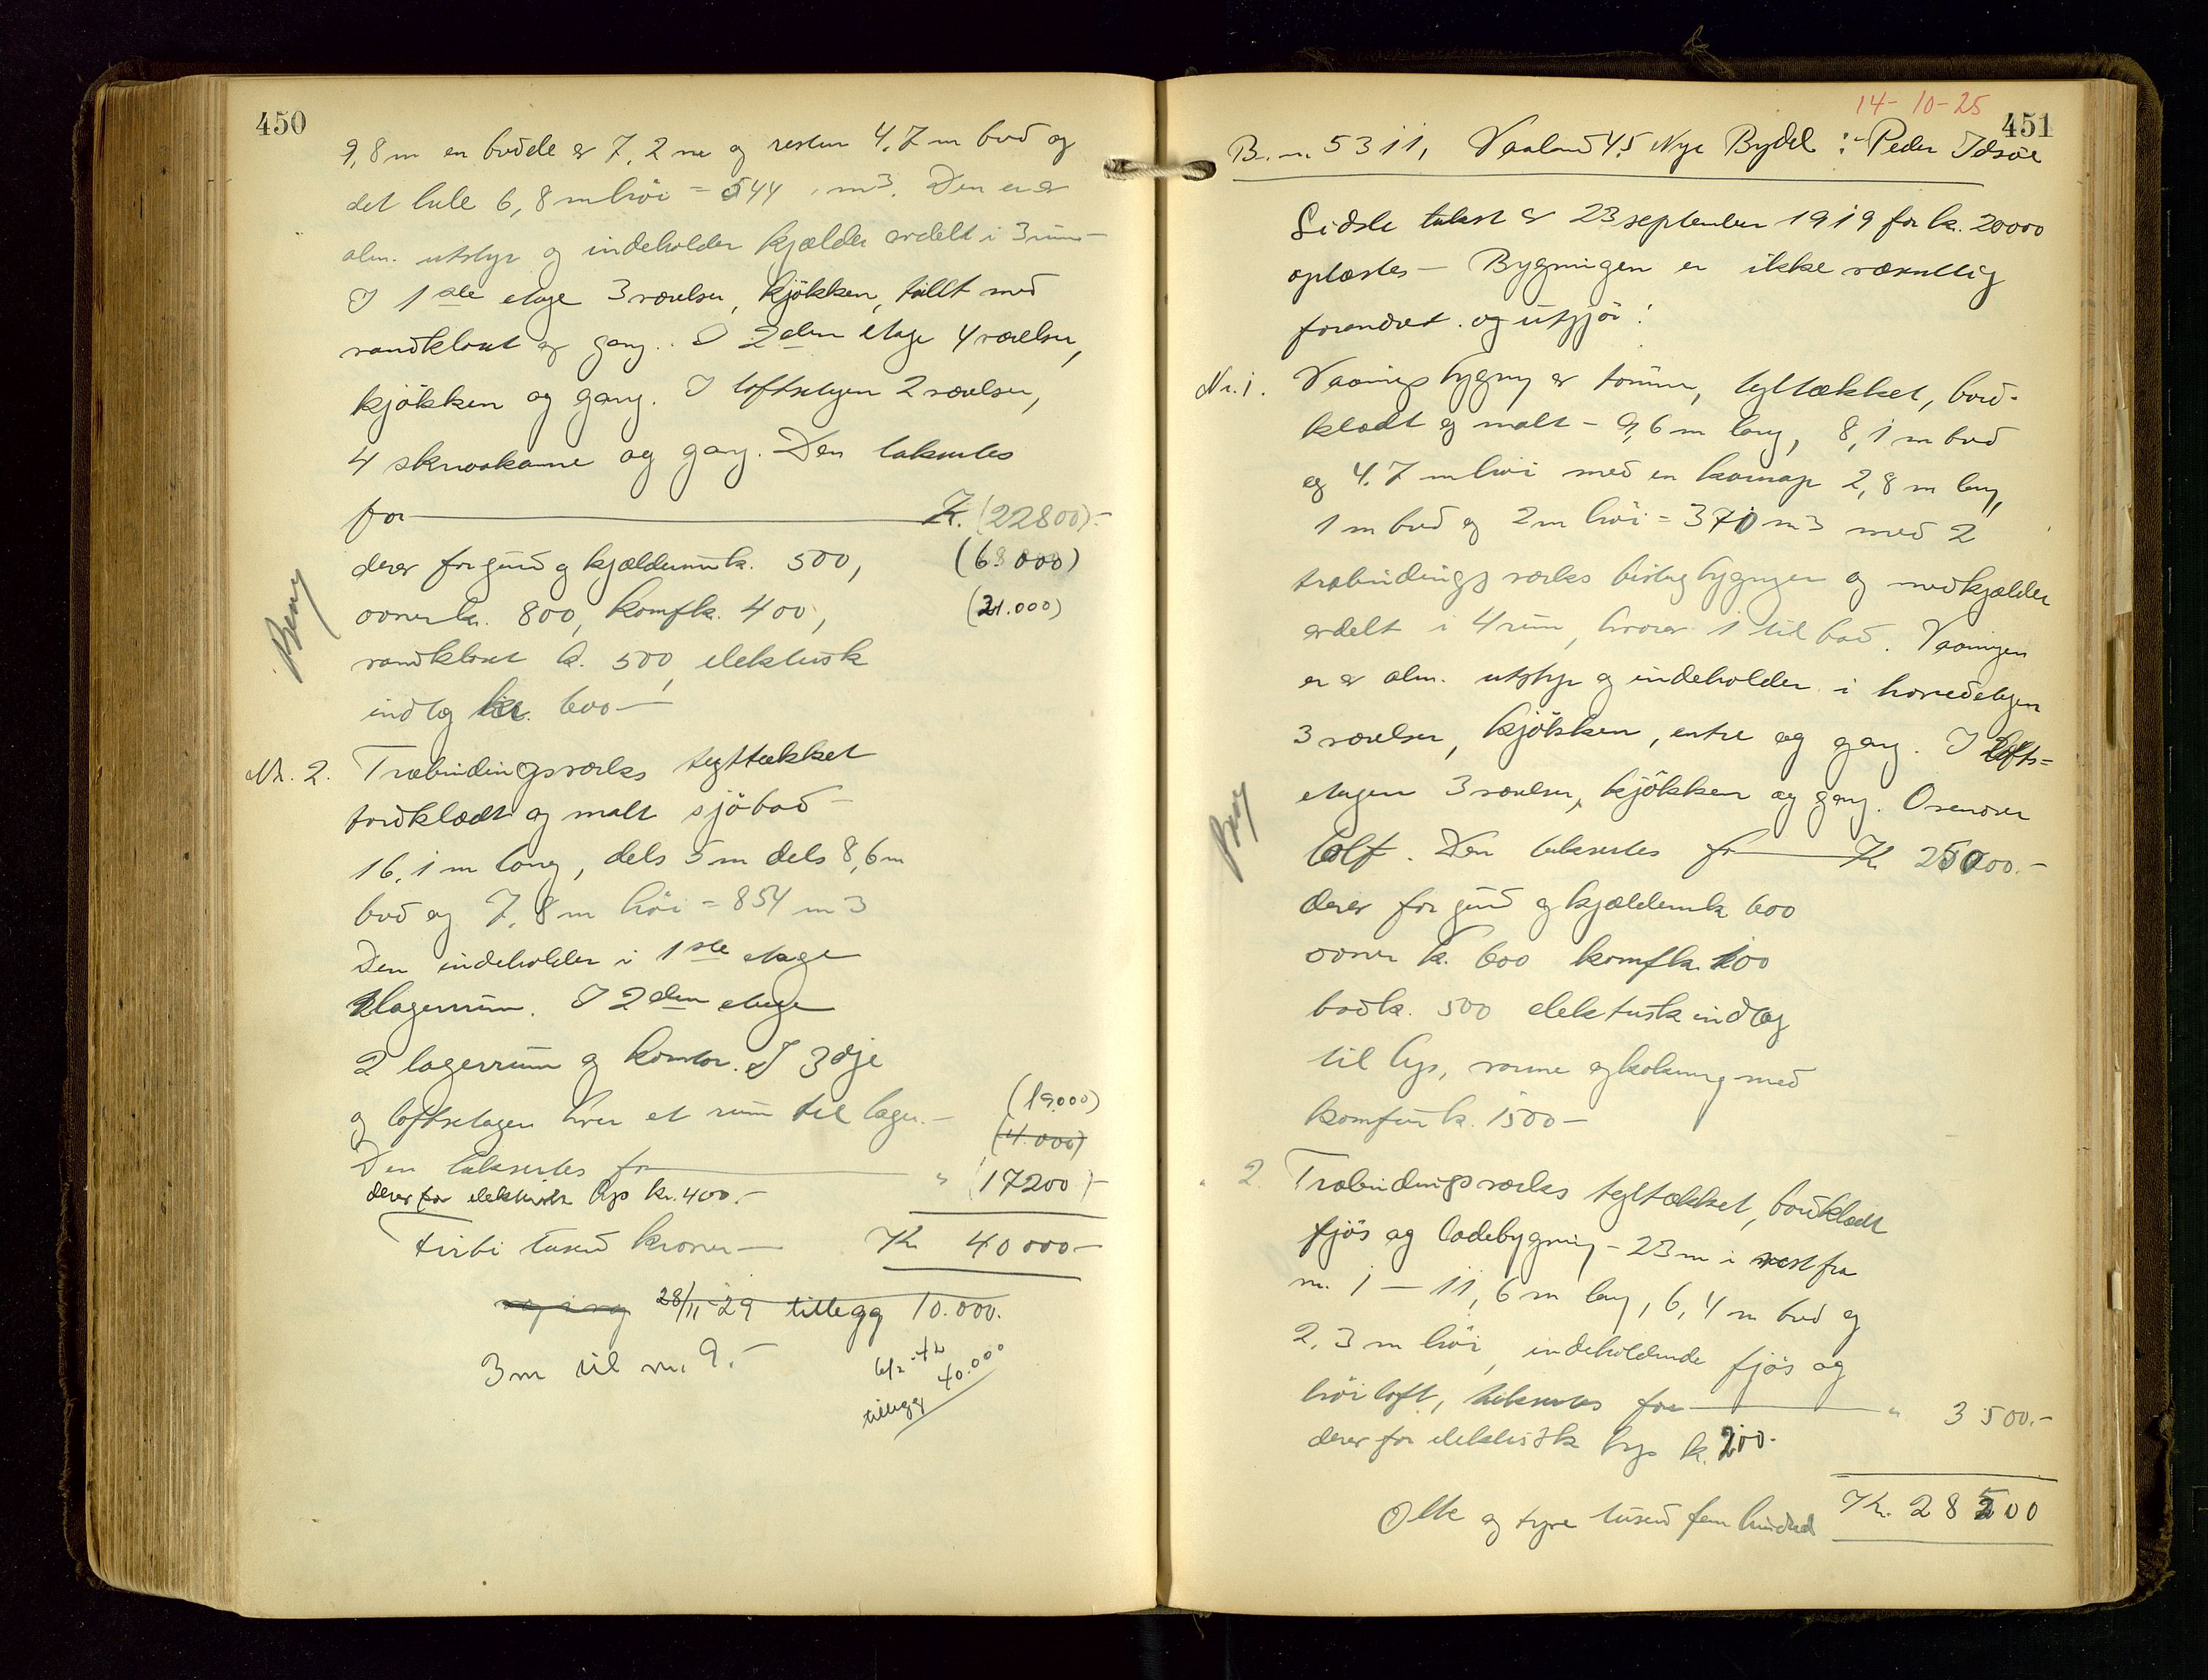 450
9,8 m en bredde av 7,2 m og resten 4,7 m bred og
det hele 6,8 m höi = 544 m3. Den er av
alm. utstyr og indeholder kjælder avdelt i 3 rum
I 1ste etage 3 værelser, kjökken, tillt med
vandkloset og gang. I 2den etage 4 værelser,
kjökken og gang. I loftsetagen 2 værelser,
4 skraakamre og gang. Den takseres
for Kr. (22800).-
derav for grund og kjælderum k. 500, (68000)
ovner kr. 800, komf k. 400, (21.000)
vandkloset k. 500, elektrisk
indlæg kr. 600-
Nr. 2. Træbindingsværks tegltækket
bordklædt og malt sjöbod
16,1 m lang, dels 5 m dels 8,6 m
bred og 7,8 m höi = 854 m3
Den indeholder i 1ste etage
lagerrum. I 2den etage
2 lagerrum og kontor. I 3dje
og loftsetagen hver et rum til lager.- (19.000)
(4.000)
Den takseres for " (17200)-
derav for elektrisk lys kr. 400.-
Firti tusen kroner Kr 40000-
28/11-29 tillegg 10.000.
3 m til nr. 9.-
6/2-42
tillegg 40.000
14-10-25
451
B. nr. 5311, Vaaland 45 Nye Bydel :- Peder Idsöe
Sidste takst av 23 september 1919 for kr. 20000
oplæstes - Bygningen er ikke væsentlig
forandret og utgjör:
Nr. 1. Vaaningsbygning av tömmer, tegltækket, bord-
klædt og malt - 9,6 m lang, 8,1 m bred
og 4,7 m höi med en karnap 2,8 m lang,
1 m bred og 2 m höi = 370 m3 med 2
træbindingsværks bislagbygninger og med kjælder
avdelt i 4 rum, hvorav 1 til bad. Vaaningen
er av alm. utstyr og indeholder i hovedetagen
3 værelser, kjökken, entre og gang. I lofts=
etagen 3 værelser, kjökken og gang. Ovenover
loft. Den takseres for Kr 25000.-
derav for grund og kjælderum k 600
ovner k. 600 komf k. 100
bad k. 500 elektrisk indlæg
til lys, varme og kokning med
komfur k. 1500-
" 2. Træbindingsværks tegltækket, bordklædt
fjös og ladebygning - 23 m i vest fra
nr. 1 - 11,6 m lang, 6,4 m bred og
2,3 m höi, indeholdende fjös og
höiloft, takseres for " 3500.-
derav for elektrisk lys k. 200-
Otte og tyve tusen fem hundred Kr. 28500